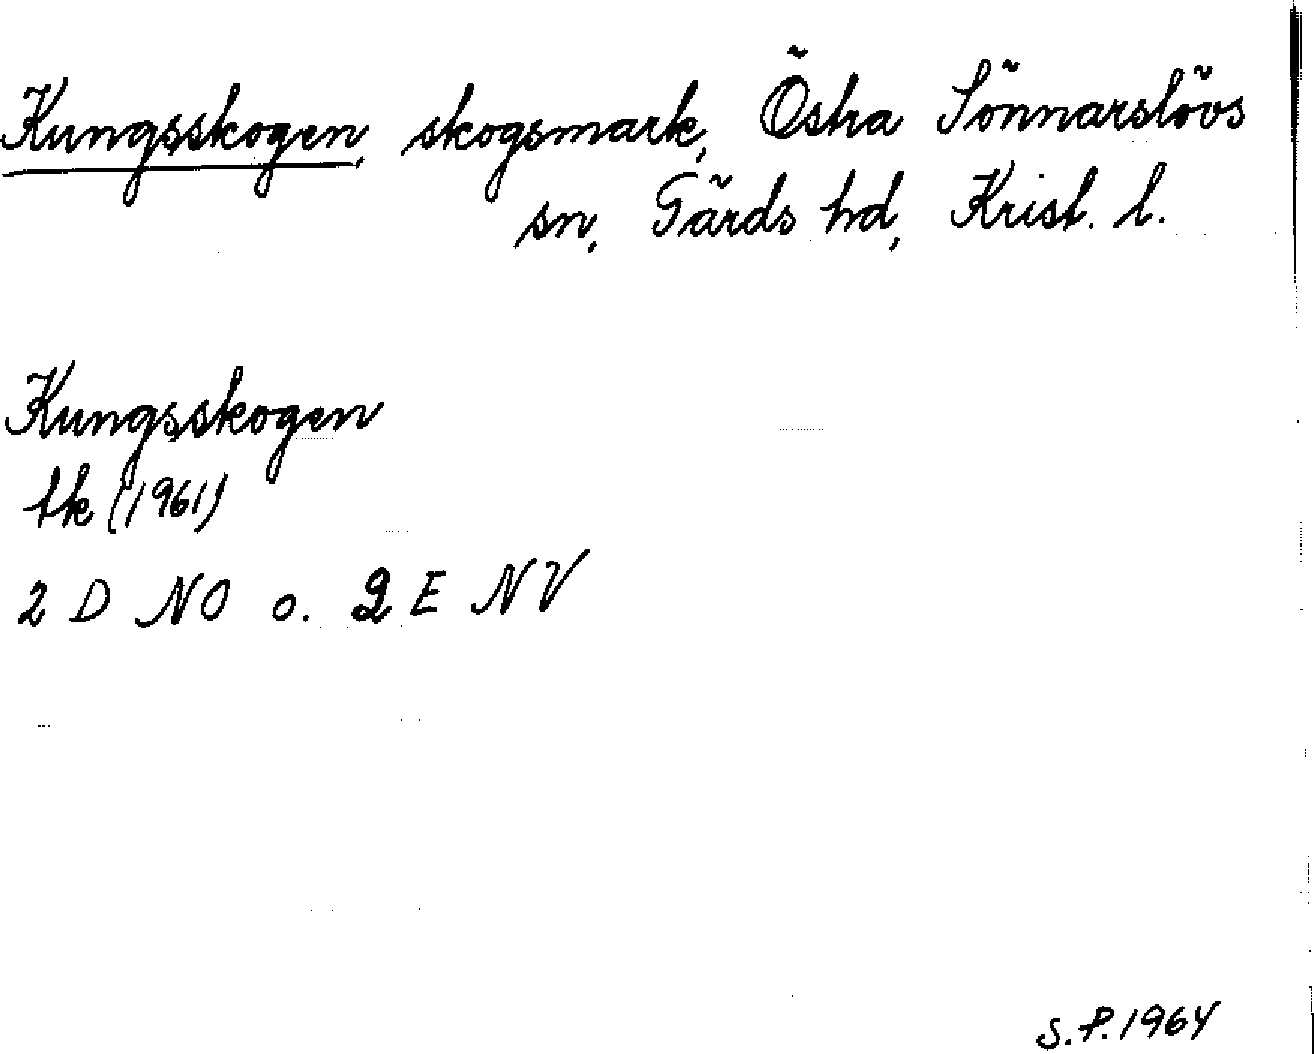 Kungsskogen, skogsmark, Östra Sönnarslövs
sn, Gärds hd, Krist. l.
Kungsskogen
tk (1961)
2 D NO o. 2 E NV
S.P. 1964